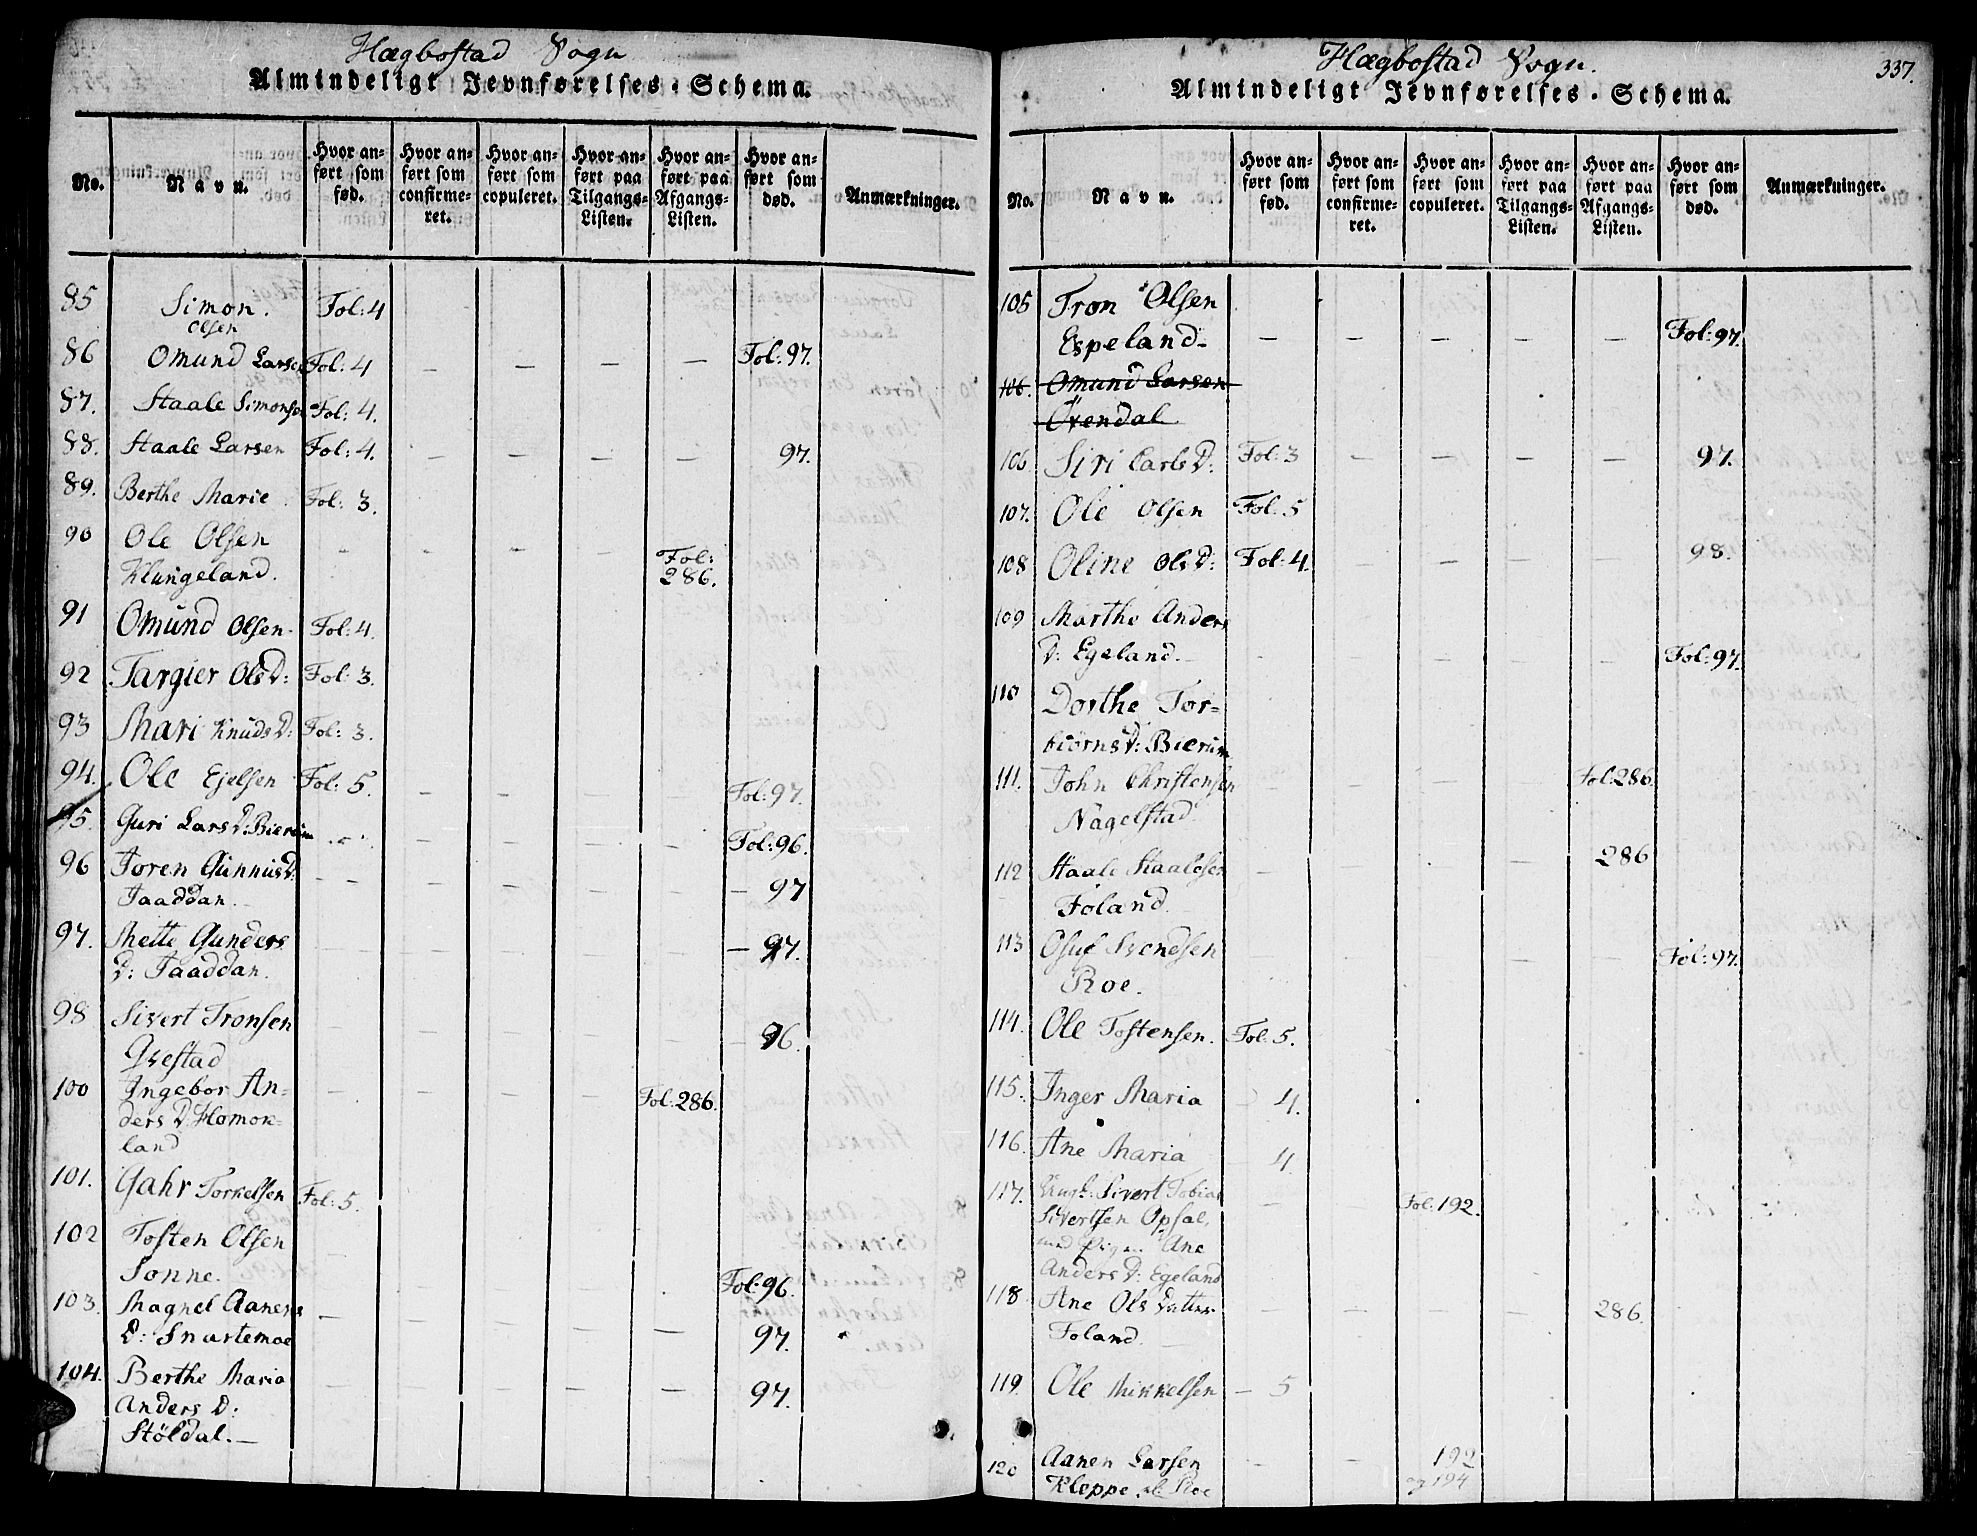 Hægbostad Sogn
Almindeligt Jevnførelses-Schema.
No. Navn. Hvor anført som fød. Hvor anført som confirmeret. Hvor anført som copuleret. Hvor anført paa Tilgangs-Listen. Hvor anført paa Afgangs-Listen. Hvor anført som død. Anmærkninger.
85 Simon. Fol: 4
Olsen
86 Omund Larsen Fol: 4 — — — — Fol: 97.
87. Staale Simons Fol: 4.
88. Staale Larsen Fol: 4. — — — — 97.
89. Berthe Marie Fol: 3.
90 Ole Olsen
Klungeland. — — — — Fol: 286.
91 Omund Olsen Fol: 4.
92 Targier OlsD: Fol: 3.
93 Mari KnudsD: Fol: 3.
94. Ole Ejelsen Fol: 5. — — — — Fol: 97.
95. Guri LarsD: Bierum Fol: 96.
96 Joren GunnusD:
Jaaddan. — — — — — 97
97. Mette Gunders
D: Jaaddan. — — — — — 97.
98 Sivert Tronsen
Qvestad — — — — — 96.
100 Ingebor An-
ders D: Homok-
land — — — — Fol: 286.
101. Gahr Torkelsen Fol: 5.
102 Tosten Olsen
Sonne. — — — — — Fol: 96.
103. Magnel Aanens
D: Snartemoe — — — — — 97.
104. Berthe Maria
Anders D:
Stöldal. — — — — — 97.
Hægbostad Sogn.
337.
Almindeligt Jevnførelses-Schema.
No. Navn. Hvor anført som fød. Hvor anført som confirmeret. Hvor anført som copuleret. Hvor anført paa Tilgangs-Listen. Hvor anført paa Afgangs-Listen. Hvor anført som død. Anmærkninger.
105 Tron Olsen
Espeland — — — — — Fol: 97.
106. Omund Larsen
Övendal
106 Siri CarlsD: Fol: 3 — — — — 97.
107. Ole Olsen Fol: 5
108 Oline OlsD: Fol: 4. — — — — 98.
109 Marthe Anders
D: Egeland. — — — — — Fol: 97.
110 Dorthe Tor-
biörnsD: Bierum
111. John Christensen Fol: 286.
Nagelstad.
112 Staale Staalesen — — 286
Foland
113 Osuf Svendsen — — Fol: 97.
Roe.
114. Ole Tostensen. Fol: 5.
115. Inger Maria — 4.
116. Ane Maria — 4.
117. Ungk: Sivert Tobias — — Fol: 192.
Sivertsen Opsal,
med Pigen Ane
Anders D: Egeland
118 Ane Ols Datter — — — — 286.
Foland.
119. Ole Mikkelsen — 5
120 Aanen Larsen — — 192
Kleppe og 194